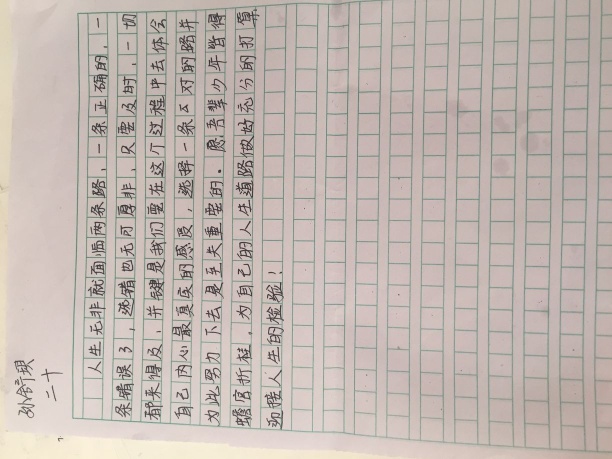 孙
二十
人生无非就面临两条路，一条正确的，一
条错误了，选错也无可厚非，只要及时，一切
都来得及，关键是我们要在这个过程中去体会
自己内心最真实的感受，选择一条正对的路并
为此努力下去是至关重要的。愿吾辈少年皆得
蟾宫折桂，为自己的人生道路做好充分的打算
迎接人生的检验！